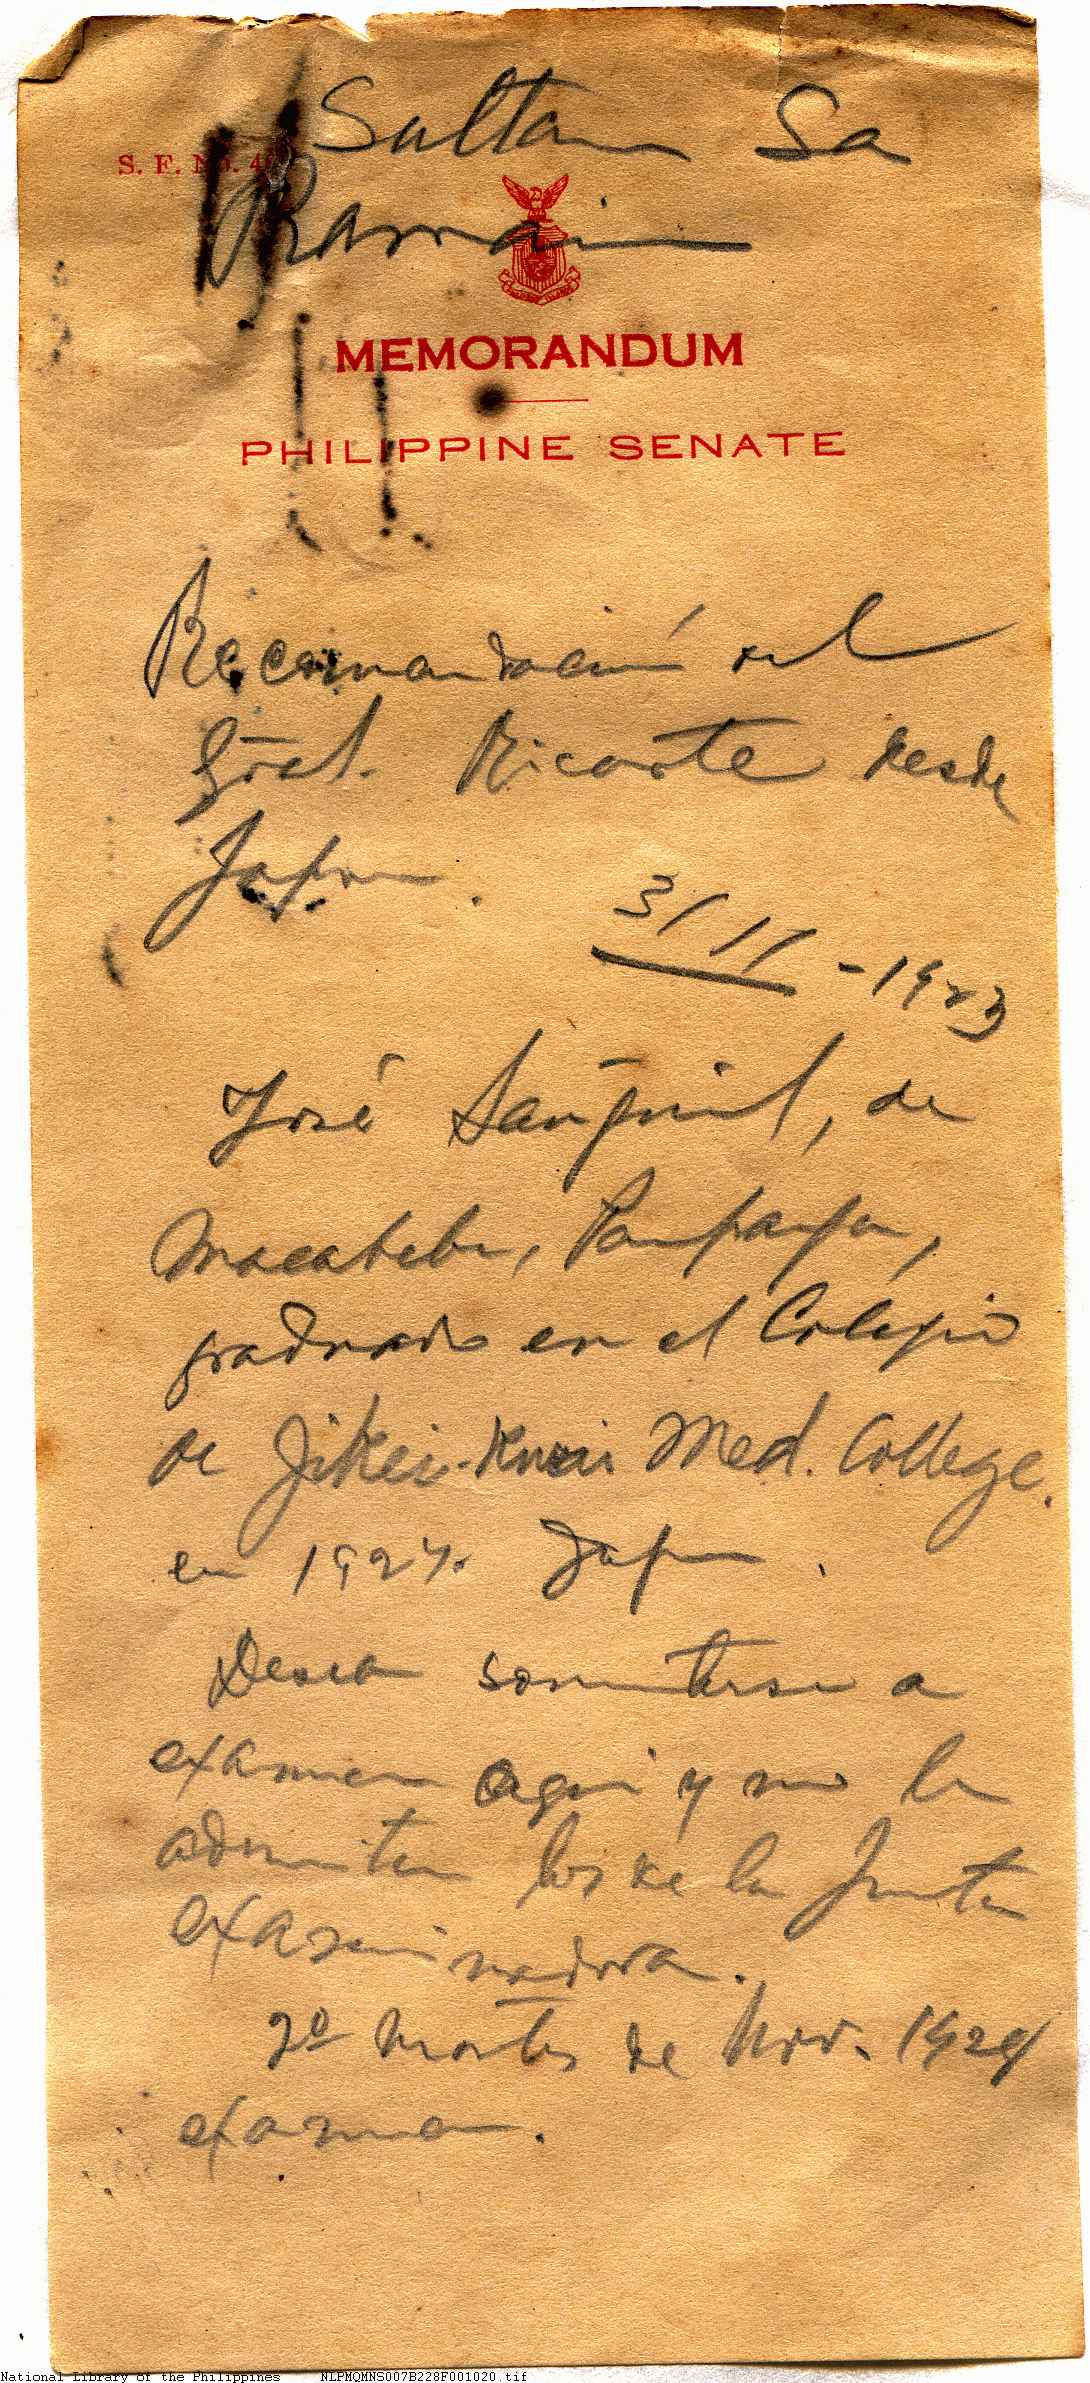 Sultan Sa
S. F. No. 4
Ramain
MEMORANDUM
PHILIPPINE SENATE
Recomendación del
Gral. Ricarte desde
Japon.
3/11-1923
José Sanguil, de
Macabebe, Pampanga,
graduado en el Colegio
de Jikei-Kwai Med. College.
en 1924. Japon.
Desea someterse a
examen aqui y no le
admiten los de la Junta
examinadora.
2º martes de Nov. 1924
examen.
National Library of the Philippines NLPMQMNS007B228F001020.tif